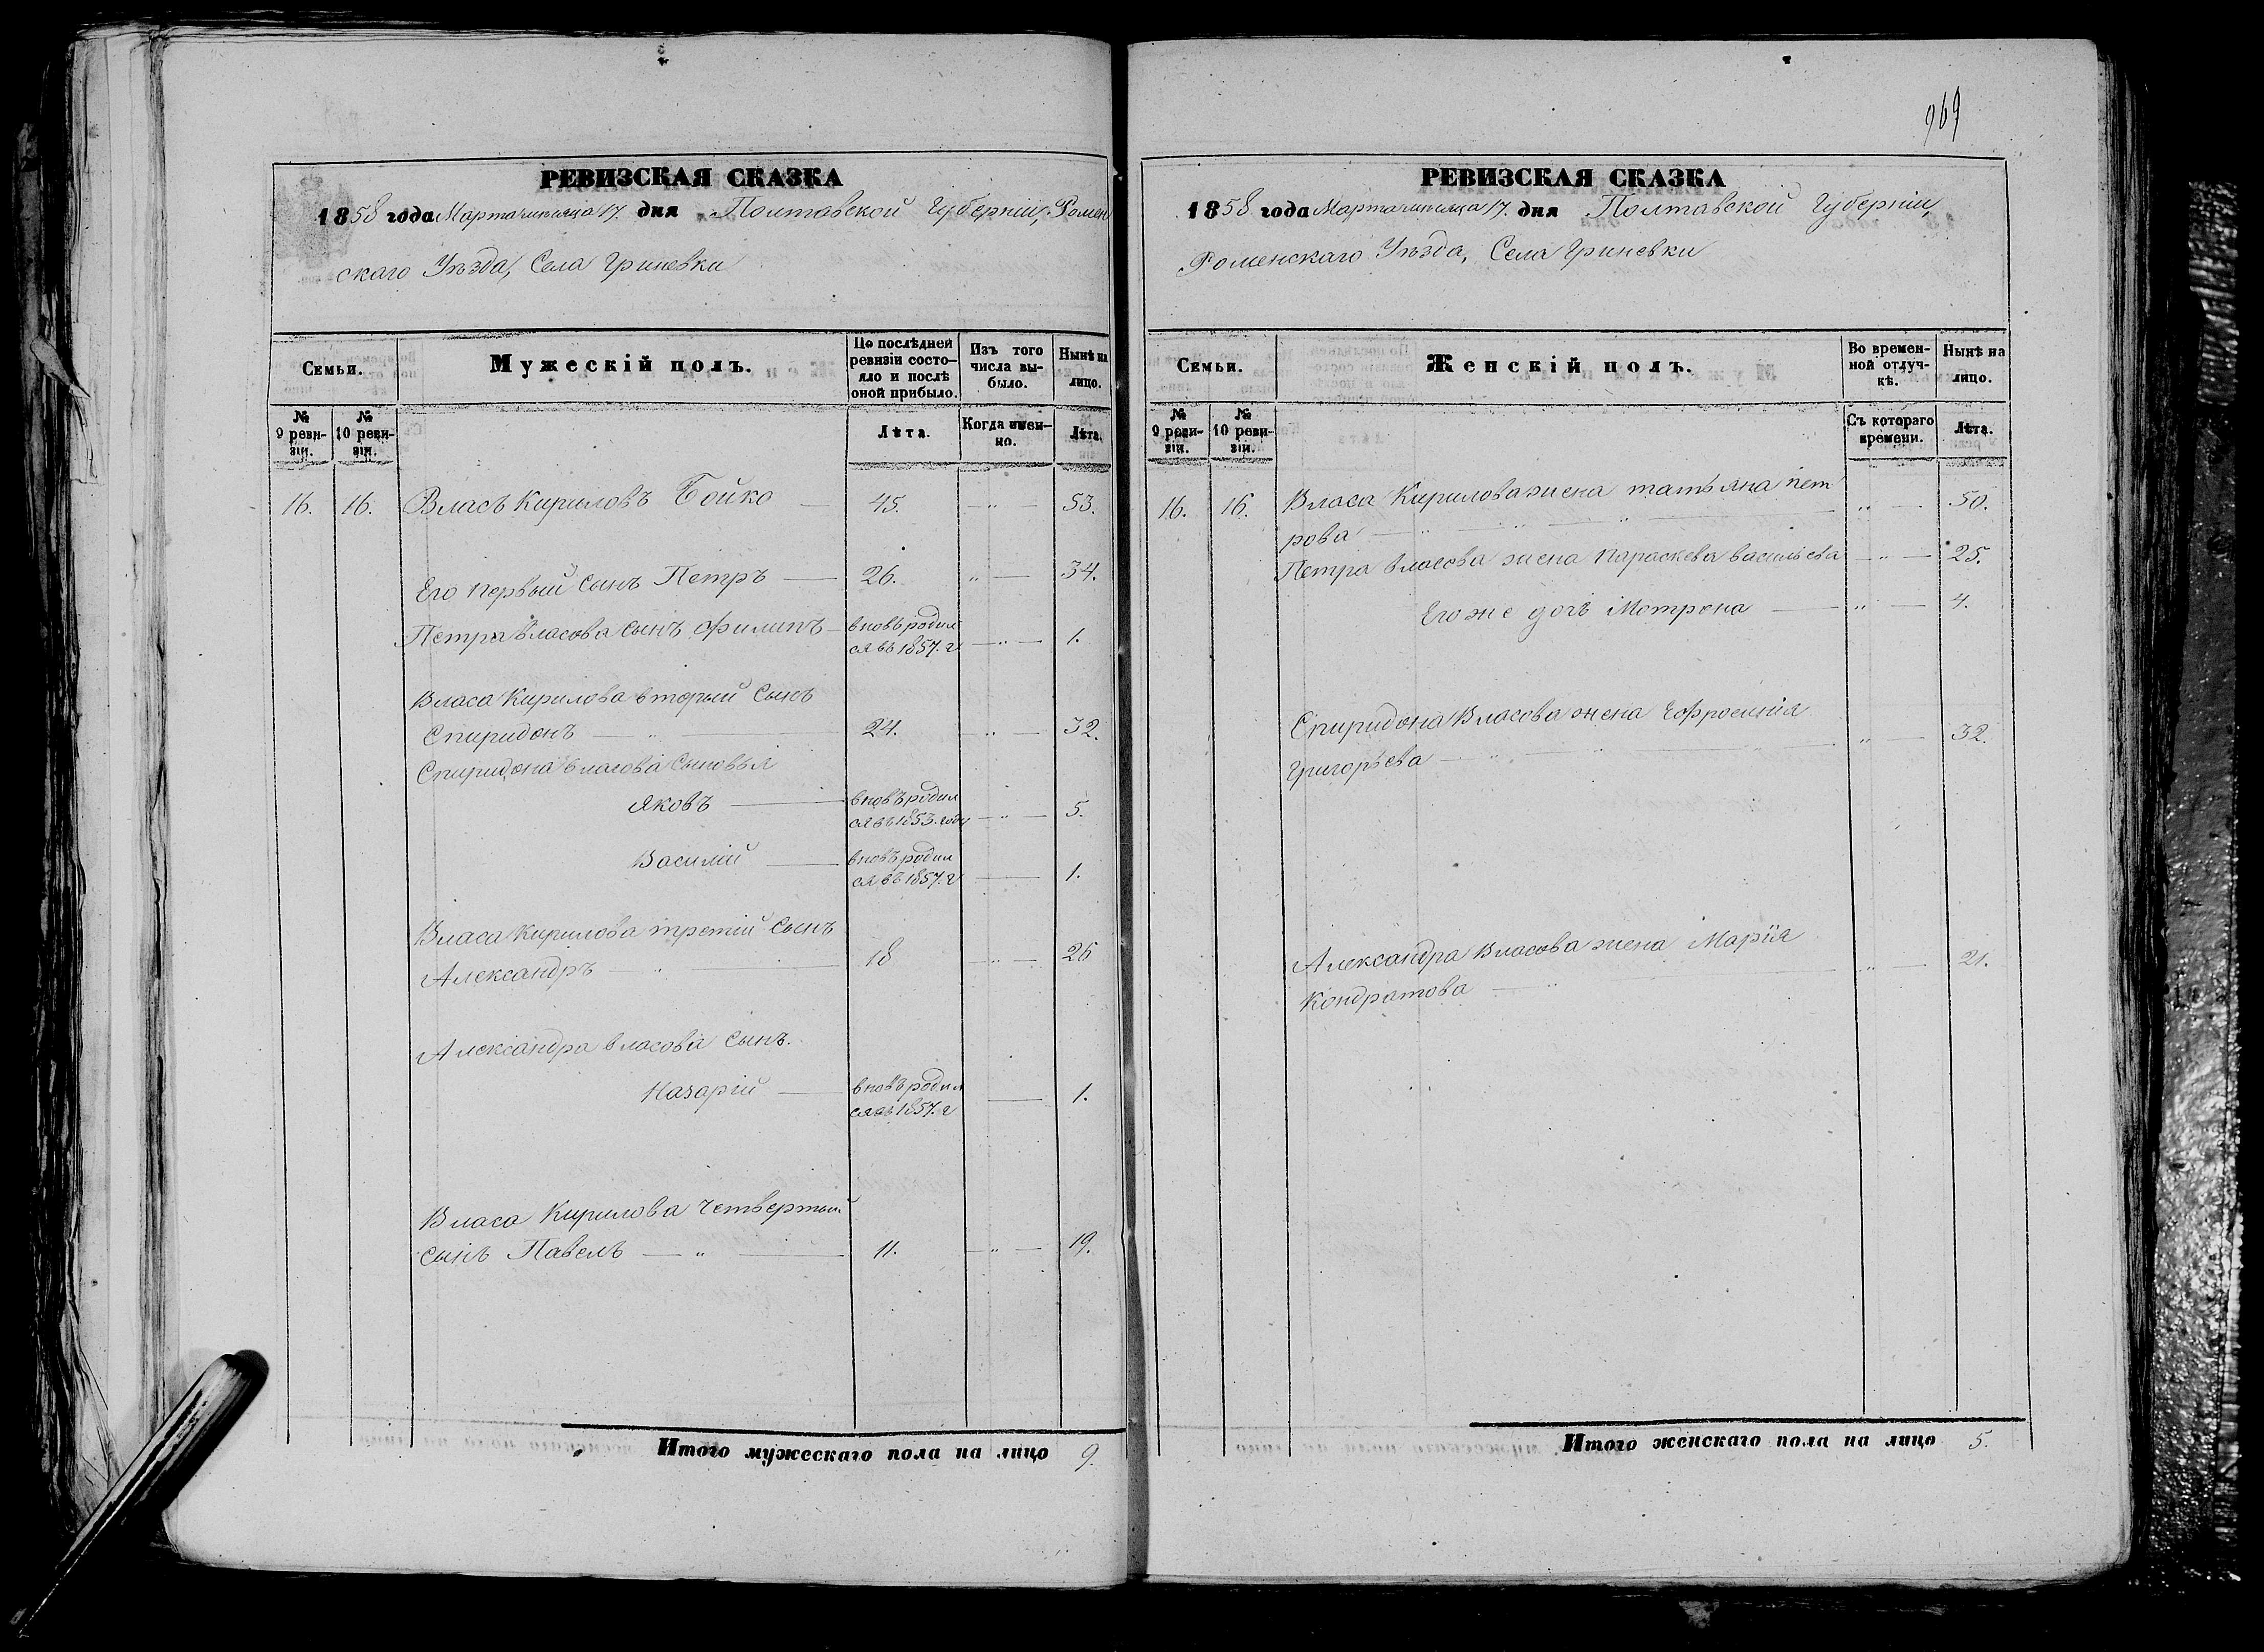 969
РЕВИЗСКАЯ СКАЗКА
1858 года Марта месяца 17. дня Полтавской Губерніи, Ромен
скаго Уѣзда, Села Гриневки
Семьи.
Мужескій полъ.
По послѣдней ревизіи состояло и послѣ оной прибыло.
Изъ того числа выбыло.
Нынѣ на лицо.
№ 9 ревизіи.
№ 10 ревизіи.
Лѣта.
Когда именно.
Лѣта.
16. 16. Власъ Кириловъ Бойко — 45. — „ — 53.
Его первый сынъ Петръ — 26. „ — 34.
Петра Власова сынъ Филипъ — вновь родил
ся въ 1857. г — „ — 1.
Власа Кирилова вторый сынъ
Спиридонъ — „ — 24. „ — 32.
Спиридона Власова сыновья
Яковъ — вновь родил
ся въ 1853. году — „ — 5.
Василій — вновь родил
ся въ 1857. г — 1.
Власа Кирилова третій сынъ
Александръ — „ — 18 — „ — 26
Александра Власова сынъ.
Назарій — вновь родил
ся въ 1857. г — 1.
Власа Кирилова четвертый
сынъ Павелъ — „ — 11. — „ — 19.
Итого мужескаго пола на лицо 9.
РЕВИЗСКАЯ СКАЗКА
1858 года Марта месяца 17. дня Полтавской Губерніи,
Роменскаго Уѣзда, Села Гриневки
Семьи.
Женскій полъ.
Во временной отлучкѣ.
Нынѣ на лицо.
№ 9 ревизіи.
№ 10 ревизіи.
Съ котораго времени.
Лѣта.
16. 16. Власа Кирилова жена татьяна пет
рова — „ — „ — „ — „ — 50.
Петра Власова жена Параскева васильева — „ — 25.
Его же дочь Мотрона — „ — 4.
Спиридона Власова жена Ефросинія
Григорьева — „ — „ — „ — 32.
Александра Власова жена Марія
Кондратова — „ — „ — 21.
Итого женскаго пола на лицо 5.